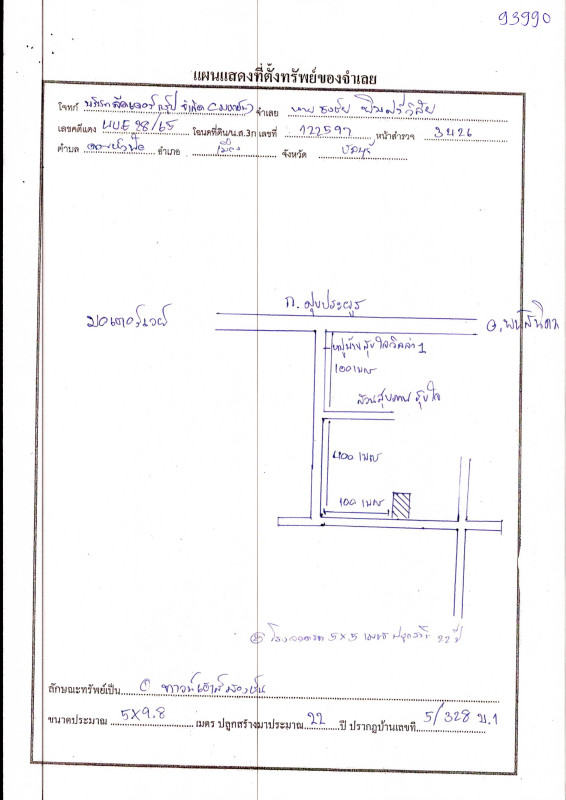 93990
แผนแสดงที่ตั้งทรัพย์ของจำเลย
โจทก์ บริษัท ลีดเวอร์ กรุ๊ป จำกัด (มหาชน) จำเลย นาย ธงชัย
เลขคดีแดง ผบE 28/65 โฉนดที่ดิน/น.ส.3ก เลขที่ 122597 หน้าสำรวจ 3426
ตำบล ดอนหัวฬ่อ อำเภอ เมือง จังหวัด ชลบุรี
ถ. ศุขประยูร
มอเตอร์เวย์
อ.พนัสนิคม
หมู่บ้านสุขใจวิลล่า 1
100 เมตร
สวนสุขภาพ สุขใจ
400 เมตร
100 เมตร
② โรงจอดรถ 5×5 เมตร ปลูกสร้าง 22 ปี
ลักษณะทรัพย์เป็น ① ทาวน์เฮ้าส์สองชั้น
ขนาดประมาณ 5×9.8 เมตร ปลูกสร้างมาประมาณ 22 ปี ปรากฏบ้านเลขที่ 5/328 ม.1